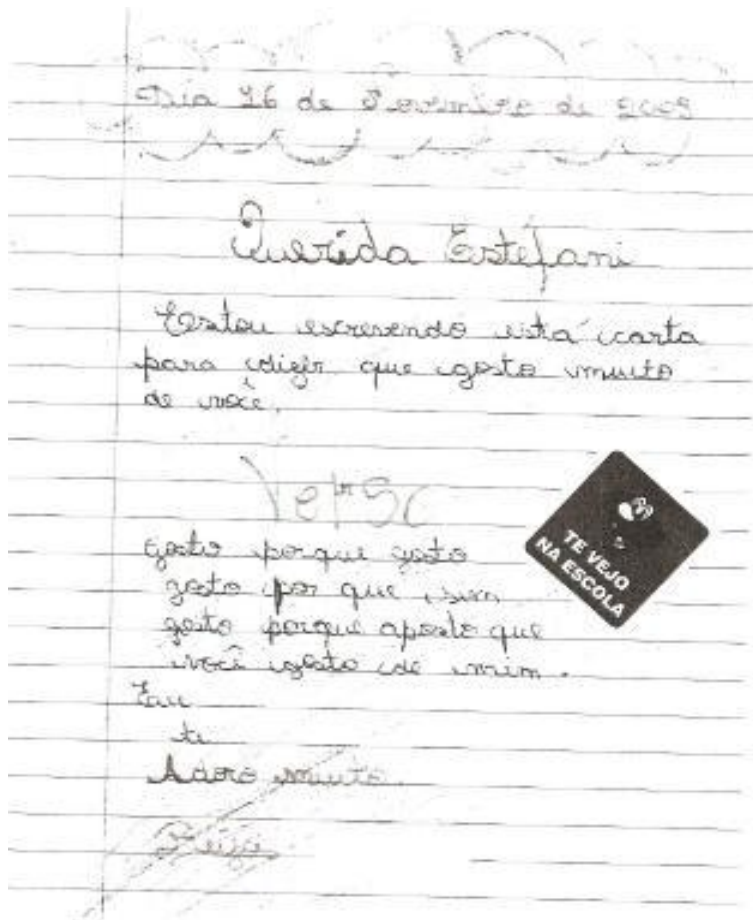 Dia 16 de Novembro de 2009
Querida Estefani
Estou escrevendo esta carta
para diser que gosto muito
de você.
Verso
gosto porque gosto
gosto por que sim
gosto porque aposto que
você gosto de mim.
Eu
ti
Adoro muito.
TE VEJO
NA ESCOLA